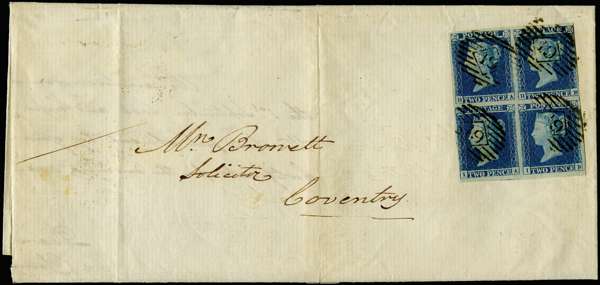 POSTAGE POSTAGE
TWO PENCE TWO PENCE
POSTAGE POSTAGE
TWO PENCE TWO PENCE
Mr. Browett
Solicitor
Coventry